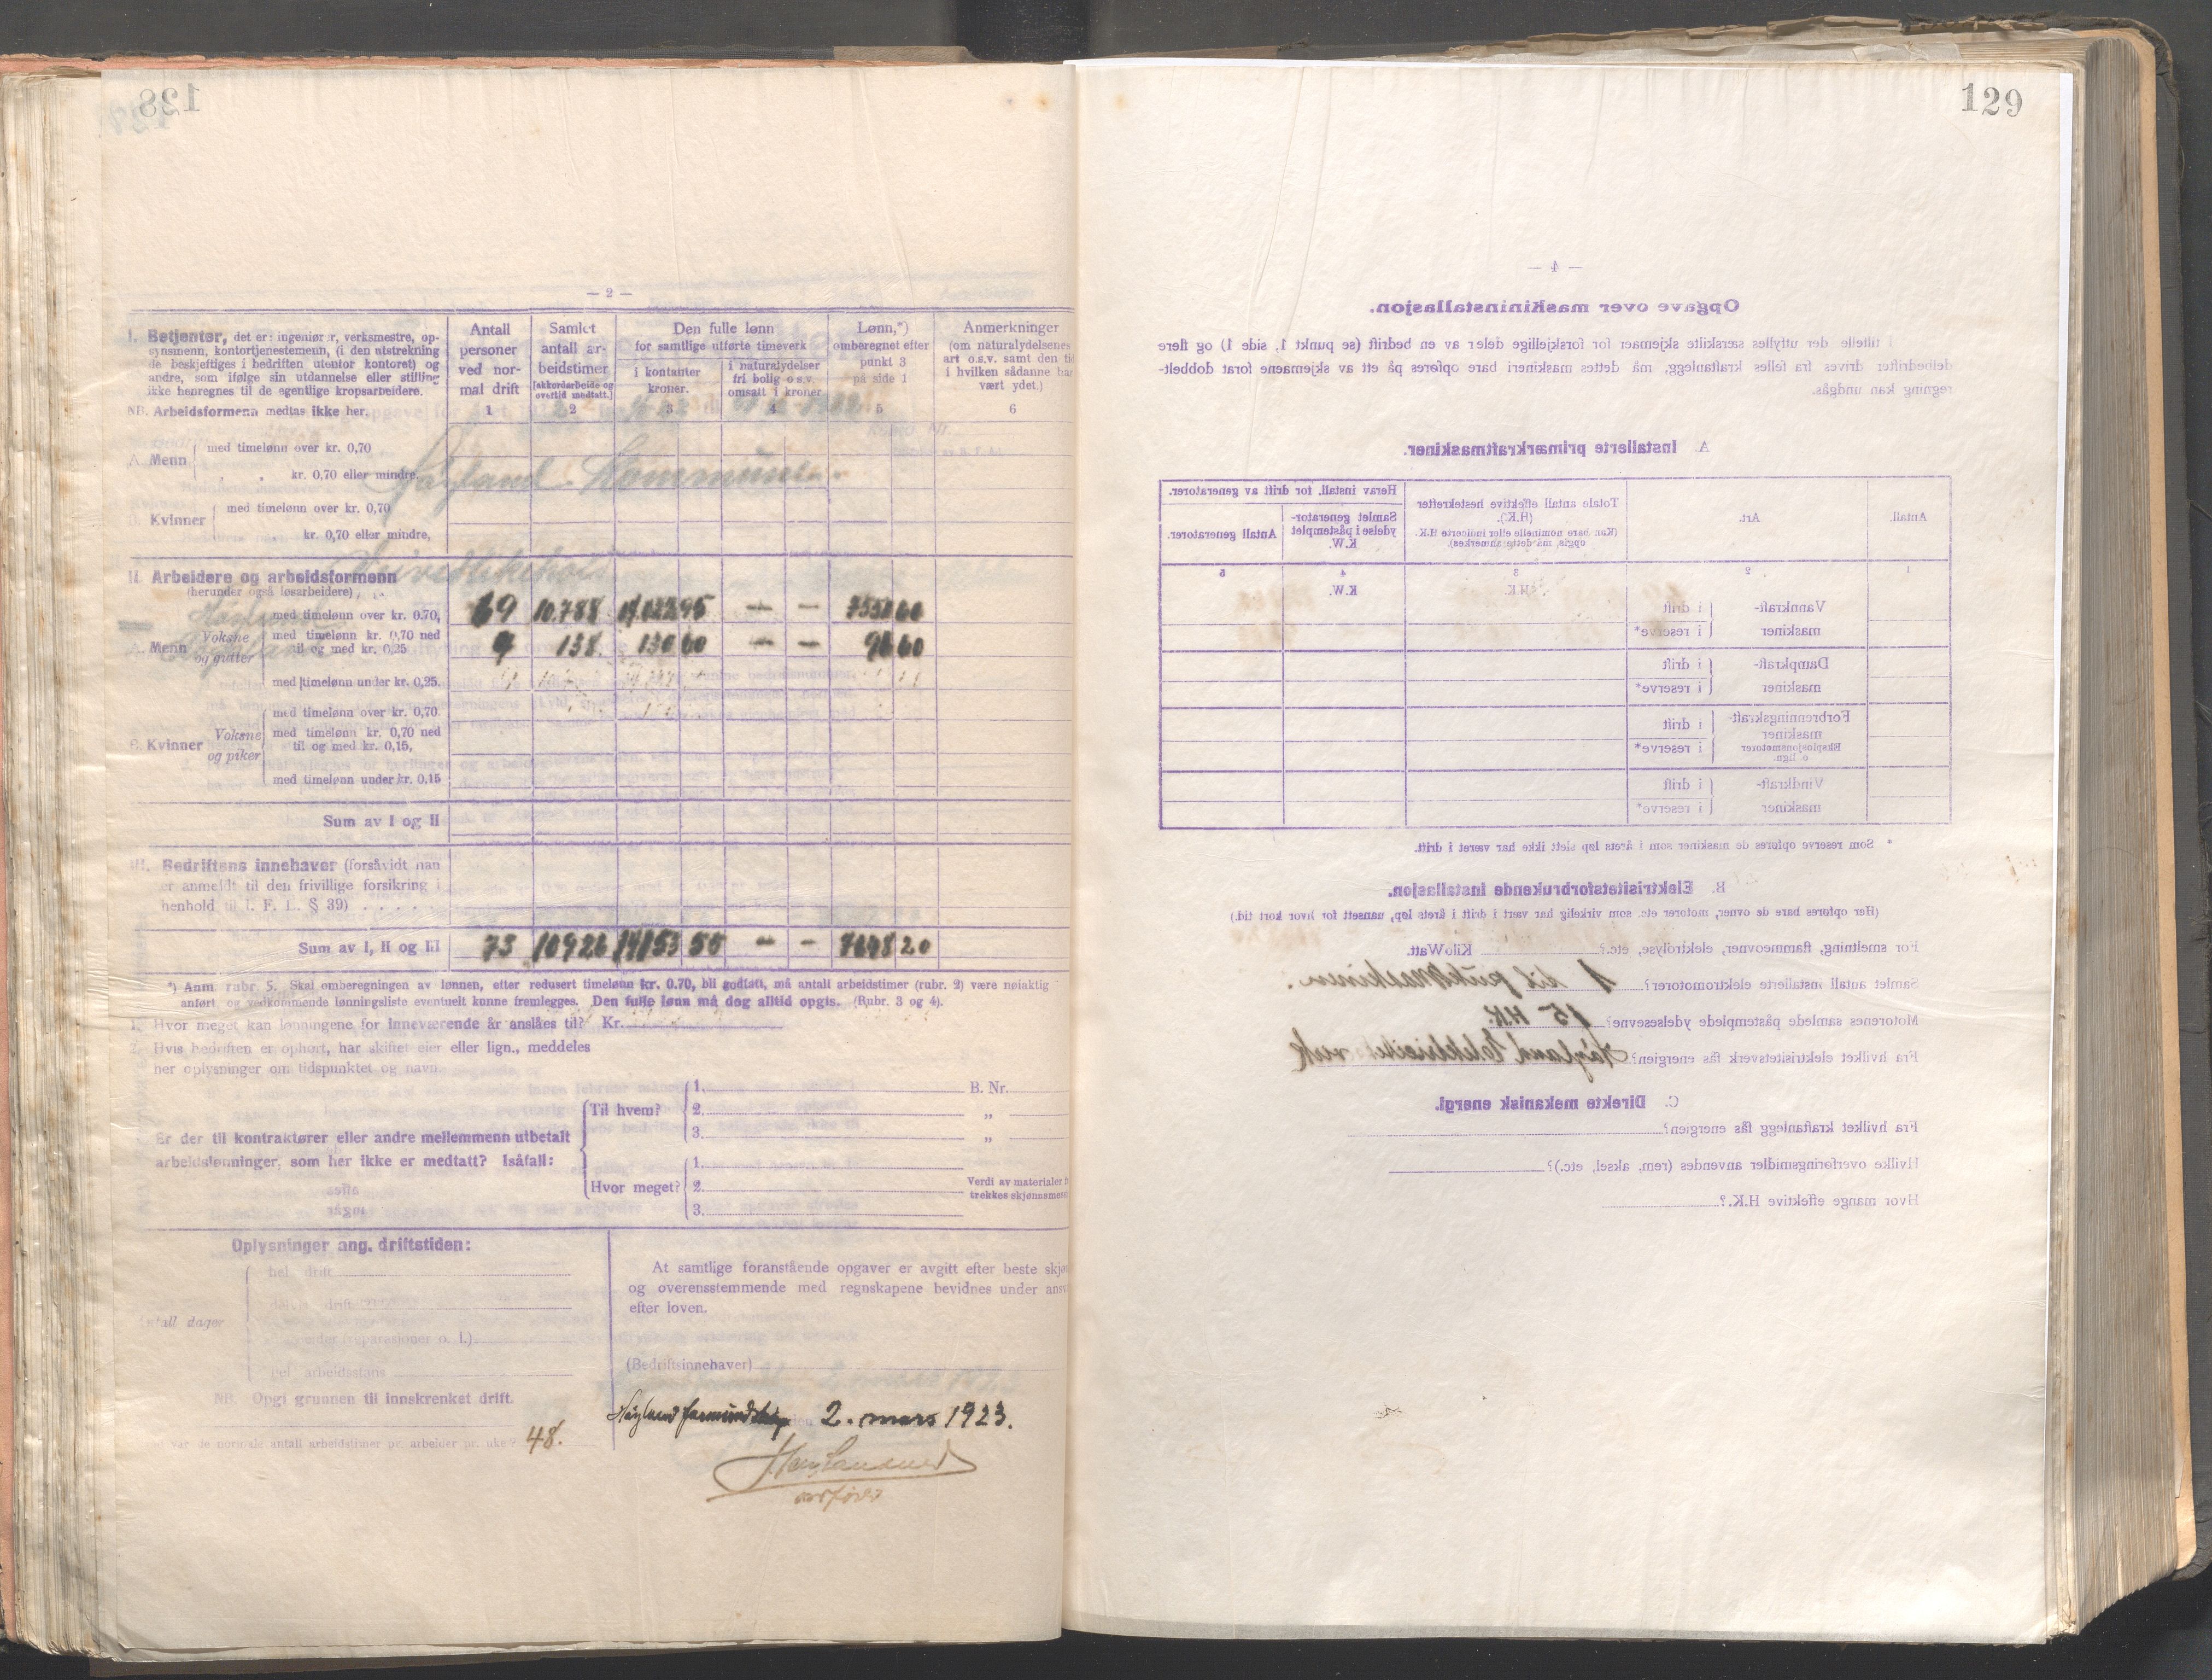 128
— 2 —
I. Betjenter, det er: ingeniører, verksmestre, op-
synsmenn, kontortjenestemenn, (i den utstrekning
de beskjeftiges i bedriften utenfor kontoret) og
andre, som ifølge sin utdannelse eller stilling
ikke henregnes til de egentlige kropsarbeidere.
NB. Arbeidsformenn medtas ikke her.
Antall
personer
ved nor-
mal drift
1
Samlet
antall ar-
beidstimer
[akkordarbeide og
overtid medtatt.]
2
Den fulle lønn
for samtlige utførte timeverk
i kontanter
kroner.
3
i naturalydelser
fri bolig o.s.v.
omsatt i kroner
4
Lønn,*)
omberegnet efter
punkt 3
på side 1
5
Anmerkninger
(om naturalydelsenes
art o.s.v. samt den
i hvilken sådanne
vært ydet.)
6
A. Menn
med timelønn over kr. 0,70
„ „ kr. 0,70 eller mindre,
Høyland Kommune
B. Kvinner
med timelønn over kr. 0,70
kr. 0,70 eller mindre,
Veivedlikehold
II. Arbeidere og arbeidsformenn
(herunder også løsarbeidere)
A. Menn Voksne og gutter
med timelønn over kr. 0.70, 69 10.788 14.022 95 — — 7551 60
med timelønn kr. 0,70 ned
til og med kr. 0,25 4 138. 130 60 — — 96 60
med timelønn under kr. 0,25.
B. Kvinner Voksne og piker
med timelønn over kr. 0,70.
med timelønn kr. 0,70 ned
til og med kr. 0,15,
med timelønn under kr. 0,15
Sum av I og II
III. Bedriftens innehaver (forsåvidt han
er anmeldt til den frivillige forsikring i
henhold til I. F. L. § 39) . . . . .
Sum av I, II og III 73 10926 14153 55 — — 7648 20
*) Anm. rubr. 5. Skal omberegningen av lønnen, efter redusert timelønn kr. 0.70, bli godtatt, må antall arbeidstimer (rubr. 2) være nøiaktig
anført, og vedkommende lønningsliste eventuelt kunne fremlegges. Den fulle lønn må dog alltid opgis. (Rubr. 3 og 4).
1. Hvor meget kan lønningene for inneværende år anslåes til? Kr.
2. Hvis bedriften er ophørt, har skiftet eier eller lign., meddeles
her oplysninger om tidspunktet og navn.
Er der til kontraktører eller andre mellemmenn utbetalt
arbeidslønninger, som her ikke er medtatt? Isåfall:
Til hvem?
1. B. Nr.
2. „
3. „
Hvor meget?
1.
2.
3.
Verdi av materialer
trekkes
Oplysninger ang. driftstiden:
Antall dager
hel drift
delvis drift
(reparasjoner o. l.)
hel arbeidsstans
NB. Opgi grunnen til innskrenket drift.
Hvad var de normale antall arbeidstimer pr. arbeider pr. uke? 48.
At samtlige foranstående opgaver er avgitt efter beste
og overensstemmende med regnskapene bevidnes under
efter loven.
(Bedriftsinnehaver)
Høyland formandskap 2. mars 1923.
ordfører
129
— 4 —
Opgave over maskininstallasjon.
I tilfelle der utfylles særskilte skjemaer for forskjellige deler av en bedrift (se punkt 1, side 1) og flere
delbedrifter drives fra felles kraftanlegg, må dettes maskineri bare opføres på ett av skjemaene forat dobbelt-
regning kan undgås.
A. Installerte primærkraftmaskiner.
Antall.
1
Art.
2
Totale antall effektive hestekrefter
(H.K.).
(Kan bare nominelle eller indiserte H.K.
opgis, må dette anmerkes).
3
H.K.
Herav install. for drift av generatorer.
Samlet generator-
ydelse i påstemplet
K.W.
4
K.W.
Antall generatorer.
5
Vannkraft-
maskiner
i drift
i reserve*
Dampkraft-
maskiner
i drift
i reserve*
Forbrenningskraft-
maskiner
Eksplosjonsmotorer
o. lign.
i drift
i reserve*
Vindkraft-
maskiner
i drift
i reserve*
* Som reserve opføres de maskiner som i årets løp slett ikke har været i drift.
B. Elektrisitetsforbrukende installasjon.
(Her opføres bare de ovner, motorer etc. som virkelig har vært i drift i årets løp, uansett for hvor kort tid.)
For smeltning, flammeovner, elektrolyse, etc.? KiloWatt.
Samlet antall installerte elektromotorer? 1 til pukkmaskinen.
Motorenes samlede påstemplede ydelsesevne? 15 H.K.
Fra hvilket elektrisitetsverk fås energien? Høyland Elektricitetsverk
C. Direkte mekanisk energi.
Fra hvilket kraftanlegg fås energien?
Hvilke overføringsmidler anvendes (rem, aksel, etc.)?
Hvor mange effektive H.K.?